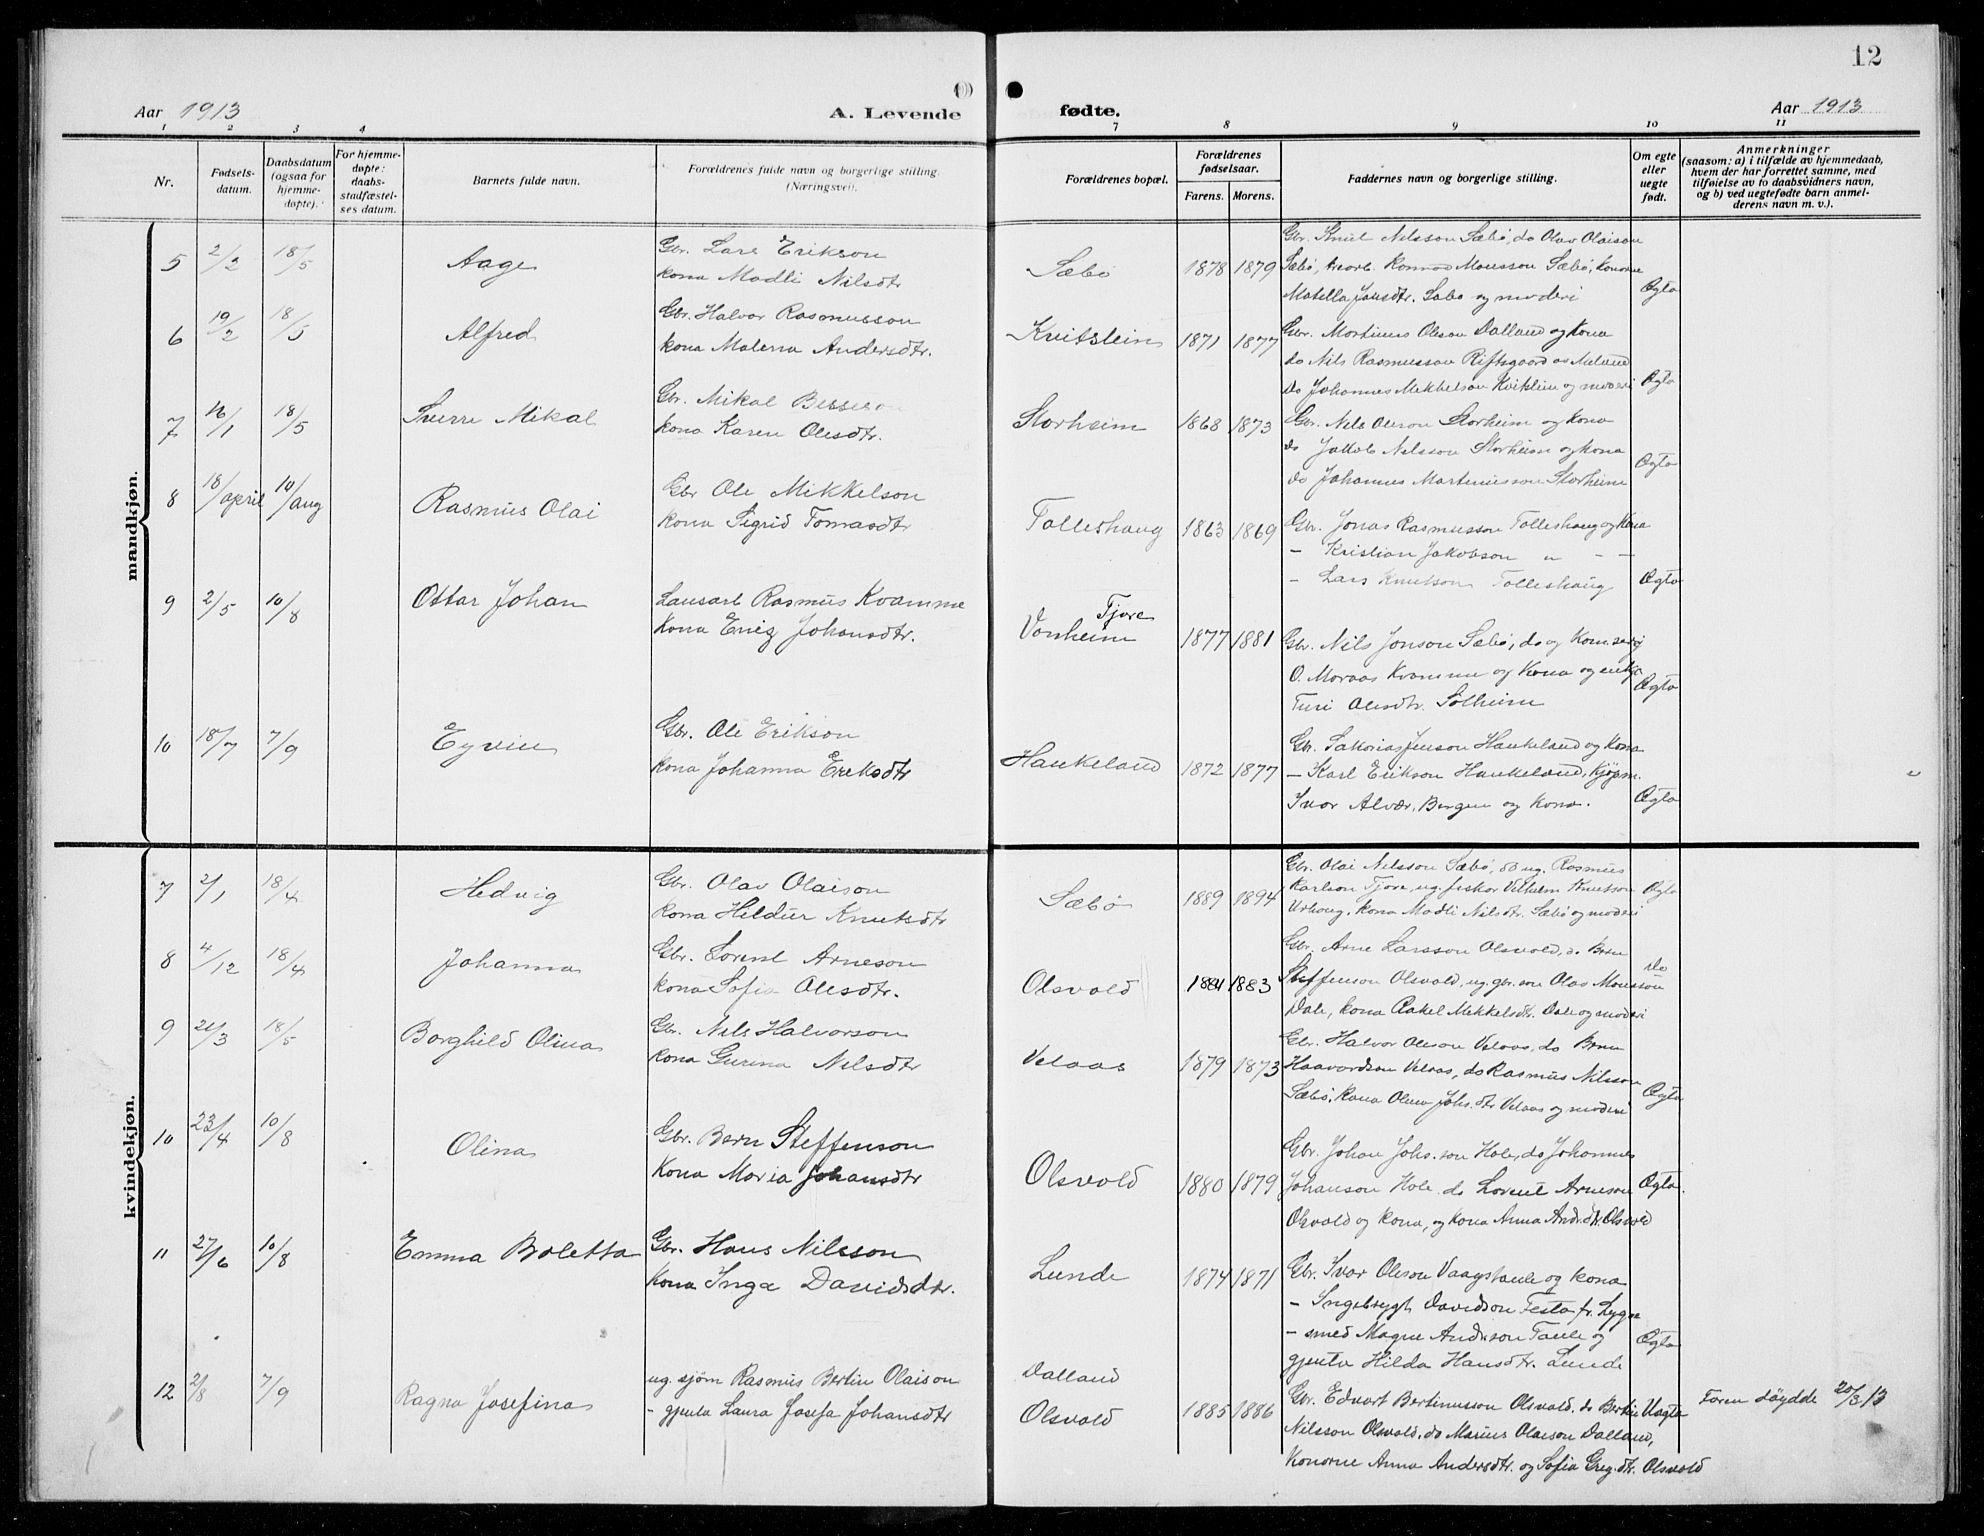 12
Aar 1913
A. Levende
fødte.
Aar 1913
1 2 3 4 7 8 9 10 11
Nr.
Fødsels-
datum.
Daabsdatum
(ogsaa for
hjemme-
døpte).
For hjemme-
døpte:
daabs-
stadfæstel-
ses datum.
Barnets fulde navn.
Forældrenes fulde navn og borgerlige stilling.
(Næringsvei).
Forældrenes bopæl.
Forældrenes
fødselsaar.
Farens. Morens.
Faddernes navn og borgerlige stilling.
Om egte
eller
uegte
født.
Anmerkninger
(saasom: a) i tilfælde av hjemmedaab,
hvem der har forrettet samme, med
tilføielse av to daabsvidners navn,
og b) ved uegtefødte barn anmel-
derens navn m. v.).
mandkjøn.
5 2/2 18/5 Aage
Gbr. Lars Erikson
kona Madli Nilsdtr
Sæbø 1878 1879
Gbr. Knut Nilsson Sæbø, do Olav Olaison
Sæbø, Konrad Monsson Sæbø, konorne
Matella Jansdtr. Sæbø og moderi
Ægta
6 19/2 18/5 Alfred
Gbr. Halvor Rasmusson
kona Malena Andersdtr.
Kvitstein 1871 1877
Gbr. Martinus Oleson Dalland og kona
do Nils Rasmusson Riftsgaard Meland
do Johannes Mikkelson Kvitstein og moderi
Ægta
7 16/1 18/5 Sverre Mikal
Gbr. Mikal Besseson
kona Karen Olesdtr.
Storheim 1868 1873
Gbr. Nils Oleson Storheim og kona
do Jakob Nilsson Storheim og kona
do Johannes Martinusson Storheim
Ægta
8 18/april 10/aug Rasmus Olai
Gbr Ole Mikkelson
kona Sigrid Tomasdtr
Tolleshaug 1863 1869
Gbr. Jonas Rasmusson Tolleshaug og kona
– Kristian Jakobson " – –
– Lars Knutson Tolleshaug
Ægta
9 2/5 10/8 Ottar Johan
Lausarb Rasmus Kvamme
kona Eriz Johansdtr.
Tjore
Vonheim 1877 1881
Gbr. Nils Jonson Sæbø, do og
O. Moraas Kvamme og kona og enkja
Turi Olesdtr. Solheim
Ægta
10 18/7 7/9 Eyvin
Gbr. Ole Erikson
kona Johanna Eriksdtr
Haukeland 1872 1877
Gbr. Sakorias Jenson Haukeland og kona
– Karl Erikson Haukeland, Kjøpm.
Ivar Alvær, Bergen og kona.
Ægta
kvindekjøn.
7 2/1 18/4 Hedvig
Gbr. Olav Olaison
kona Hildur Knutsdtr
Sæbø 1889 1894
Gbr. Olai Nilsson Sæbø, do ug. Rasmus
Karlson Tjore, ug. fiskar Vilhelm Knutsson
Urhaug, kona Madli Nilsdtr. Sæbø og moderi
Ægta
8 4/12 18/4 Johanna
Gbr. Lorent Arneson
kona Sofia Olesdtr.
Olsvold 1881 1883
Gbr. Arne Larsson Olsvold, do Bern
Steffenson Olsvold, ug. gbr. son Olav Monsson
Dale, kona Rakel Mikkelsdt. Dale og moderi
Do
9 21/3 18/5 Borghild Olina
Gbr. Nils Halvorson
kona Gurina Nilsdtr
Velaas 1879 1873
Gbr. Halvor Oleson Velaas, do Bern
Haavardson Velaas, do Rasmus Nilsson
Sæbø, kona Olina Johs. dtr Velaas og moderi
Ægta
10 23/4 10/8 Olina
Gbr. Bern Steffenson
Kona Maria Johansdtr
Olsvold 1880 1879
Gbr. Johan Johs. son Hole, do Johannes
Johanson Hole. do Lorent Arneson
Olsvold og kona, og kona Anna And. dtr. Olsvold
Ægta.
11 27/6 10/8 Emma Boletta
Gbr. Hans Nilsson
Kona Inga Davidsdtr.
Lunde 1874 1871
Gbr. Ivar Oleson Vaagstaule og kona
– Ingebrygt Davidson Festa fr. Lygre
– smed Magne Anderson Taule og
gjenta Hilda Hansdtr. Lunde
Ægta
12 2/8 7/9 Ragna Josefina
ug. sjøm Rasmus Bertin Olaison
– gjenta Laura Josefa Johansdtr
Dalland
Olsvold 1885 1886
Gbr. Edvart Bertinusson Olsvold. do Bertin
Nilsson Olsvold. do Marius Olaison Dalland,
Konorne Anna Andersdtr. og Sofia Greg. dtr. Olsvold
Uægta
Faren døydde 20/3 13